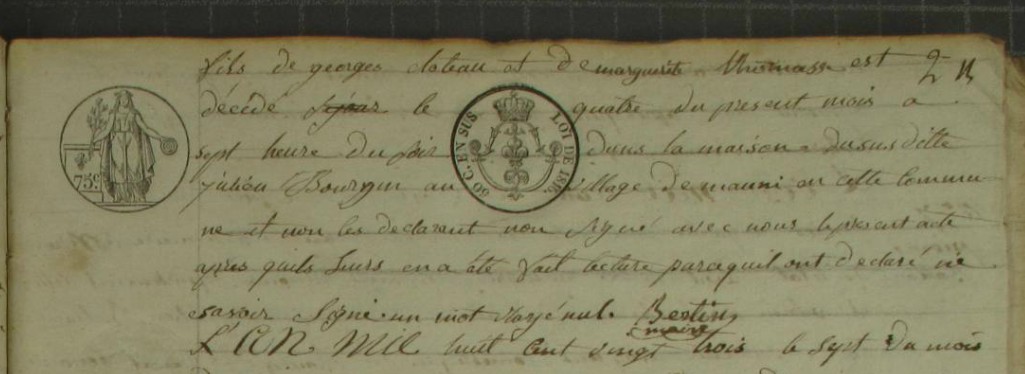 fils de georges cloteau et de marguerite thomasse est
décédé le quatre du present mois a
sept heure du soir dans la maison du susditte
julien Bourgin au village de mauni en cette Commu
ne et non les declarant non signé avec nous le present acte
apres quils leurs en a été fait lecture parcequil ont declaré ne
savoir signé. un mot rayé nul. Bertin
maire
L'AN MIL huit cent vingt trois le sept du mois
75C.
50 C. EN SUS
LOI DE